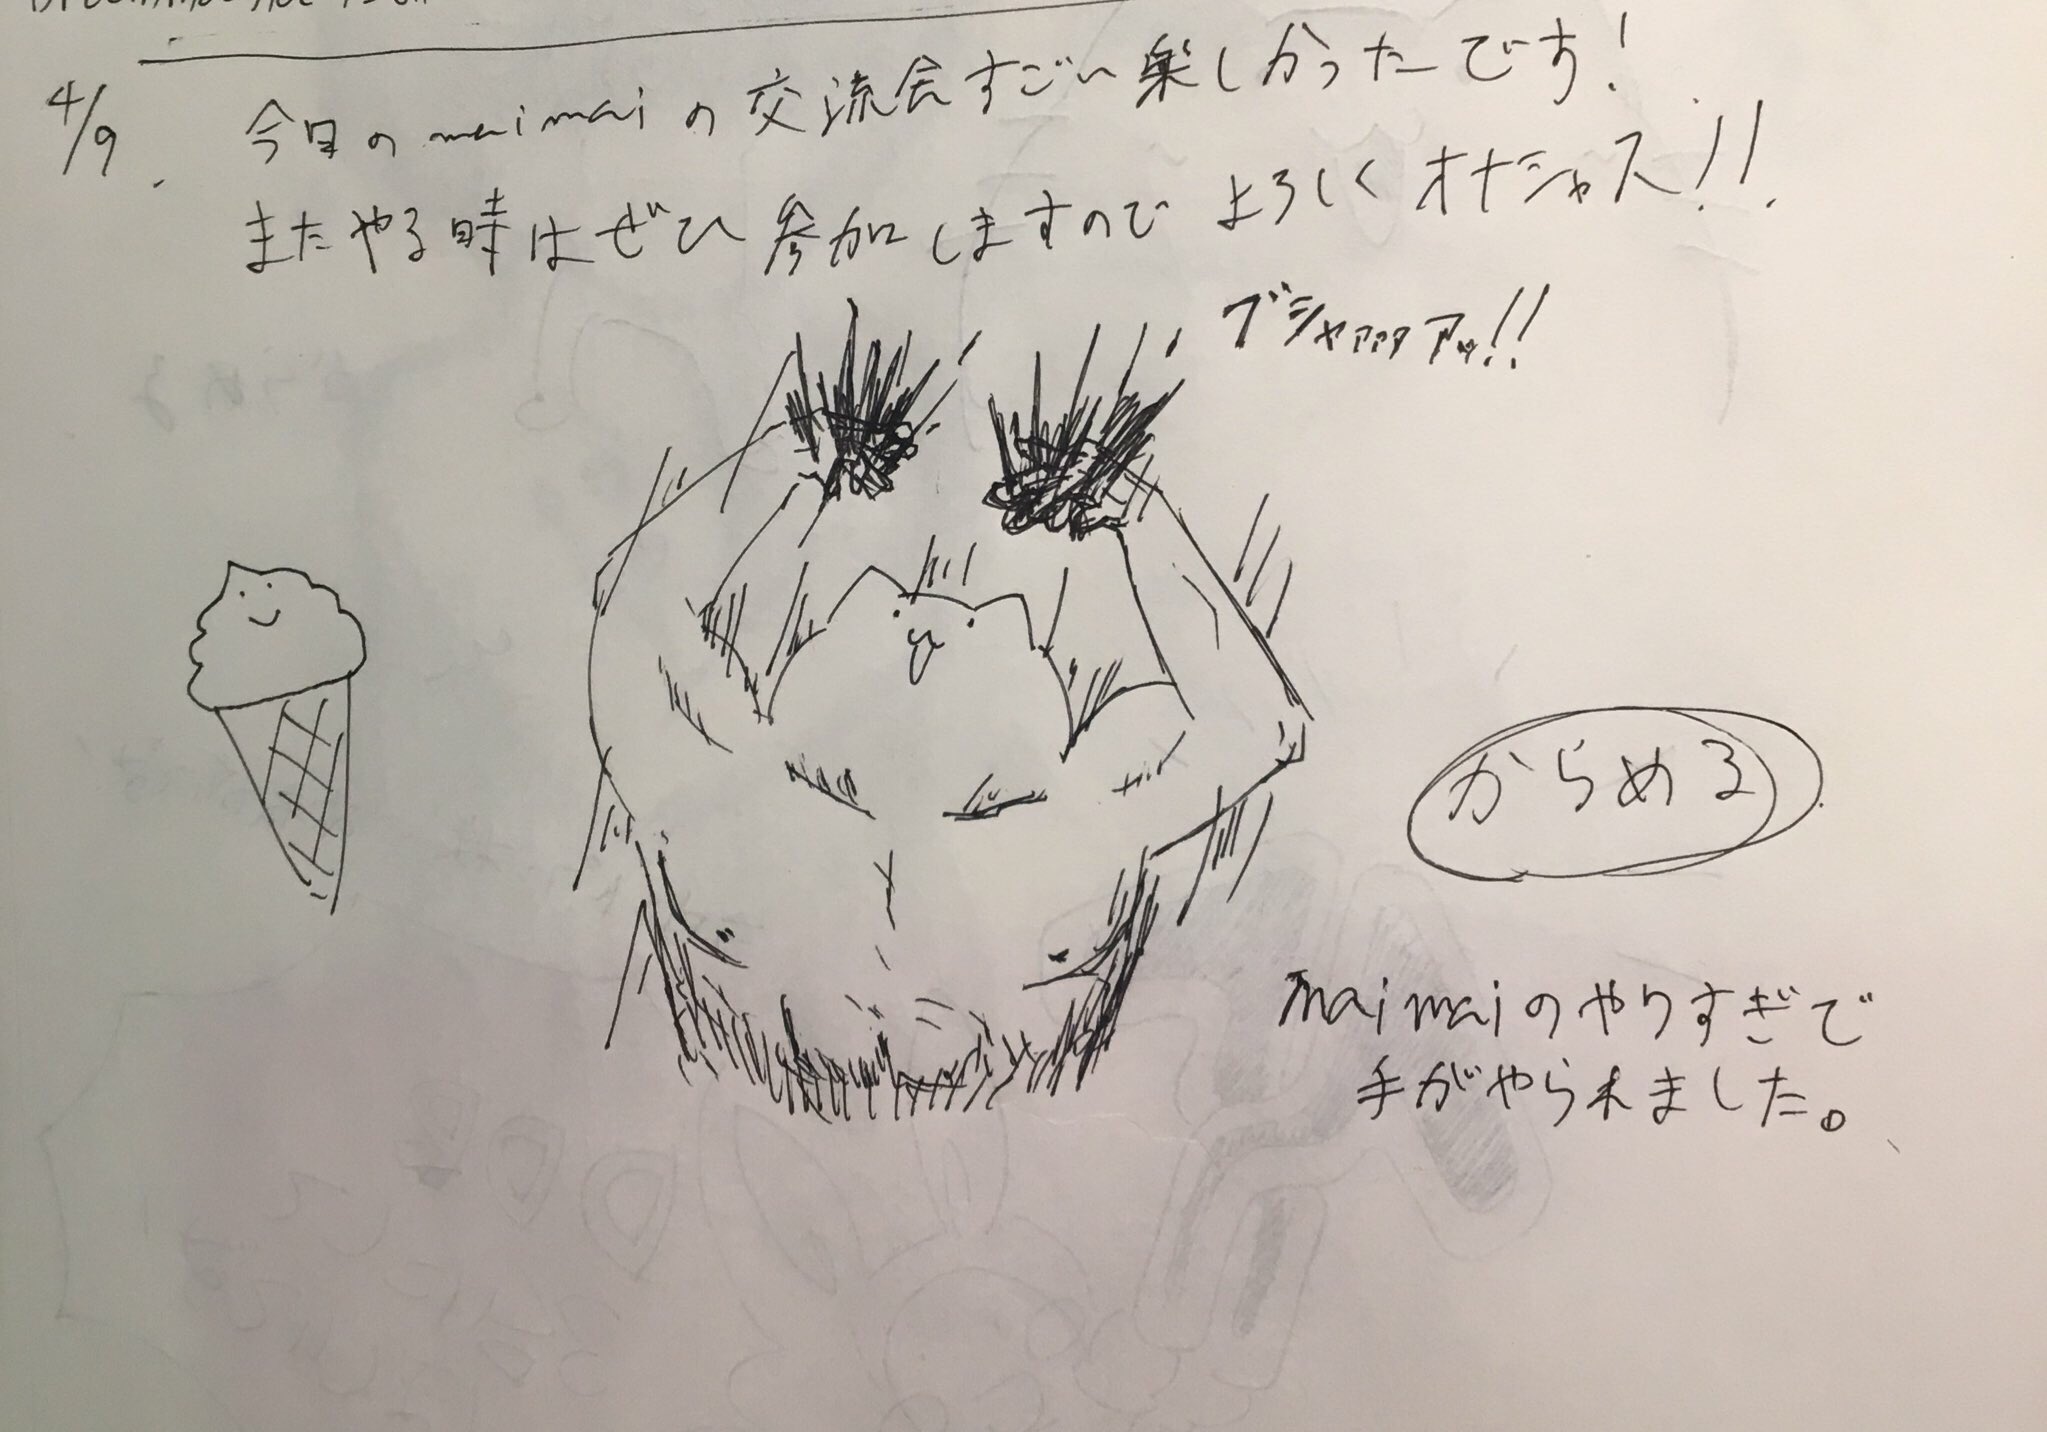 4/9. 今日のmaimaiの交流会すごい楽しかったです!
またやる時はぜひ参加しますので よろしくオナシャス!!
ブシャァァァアッ!!
からめる
maimaiのやりすぎで
手がやられました。